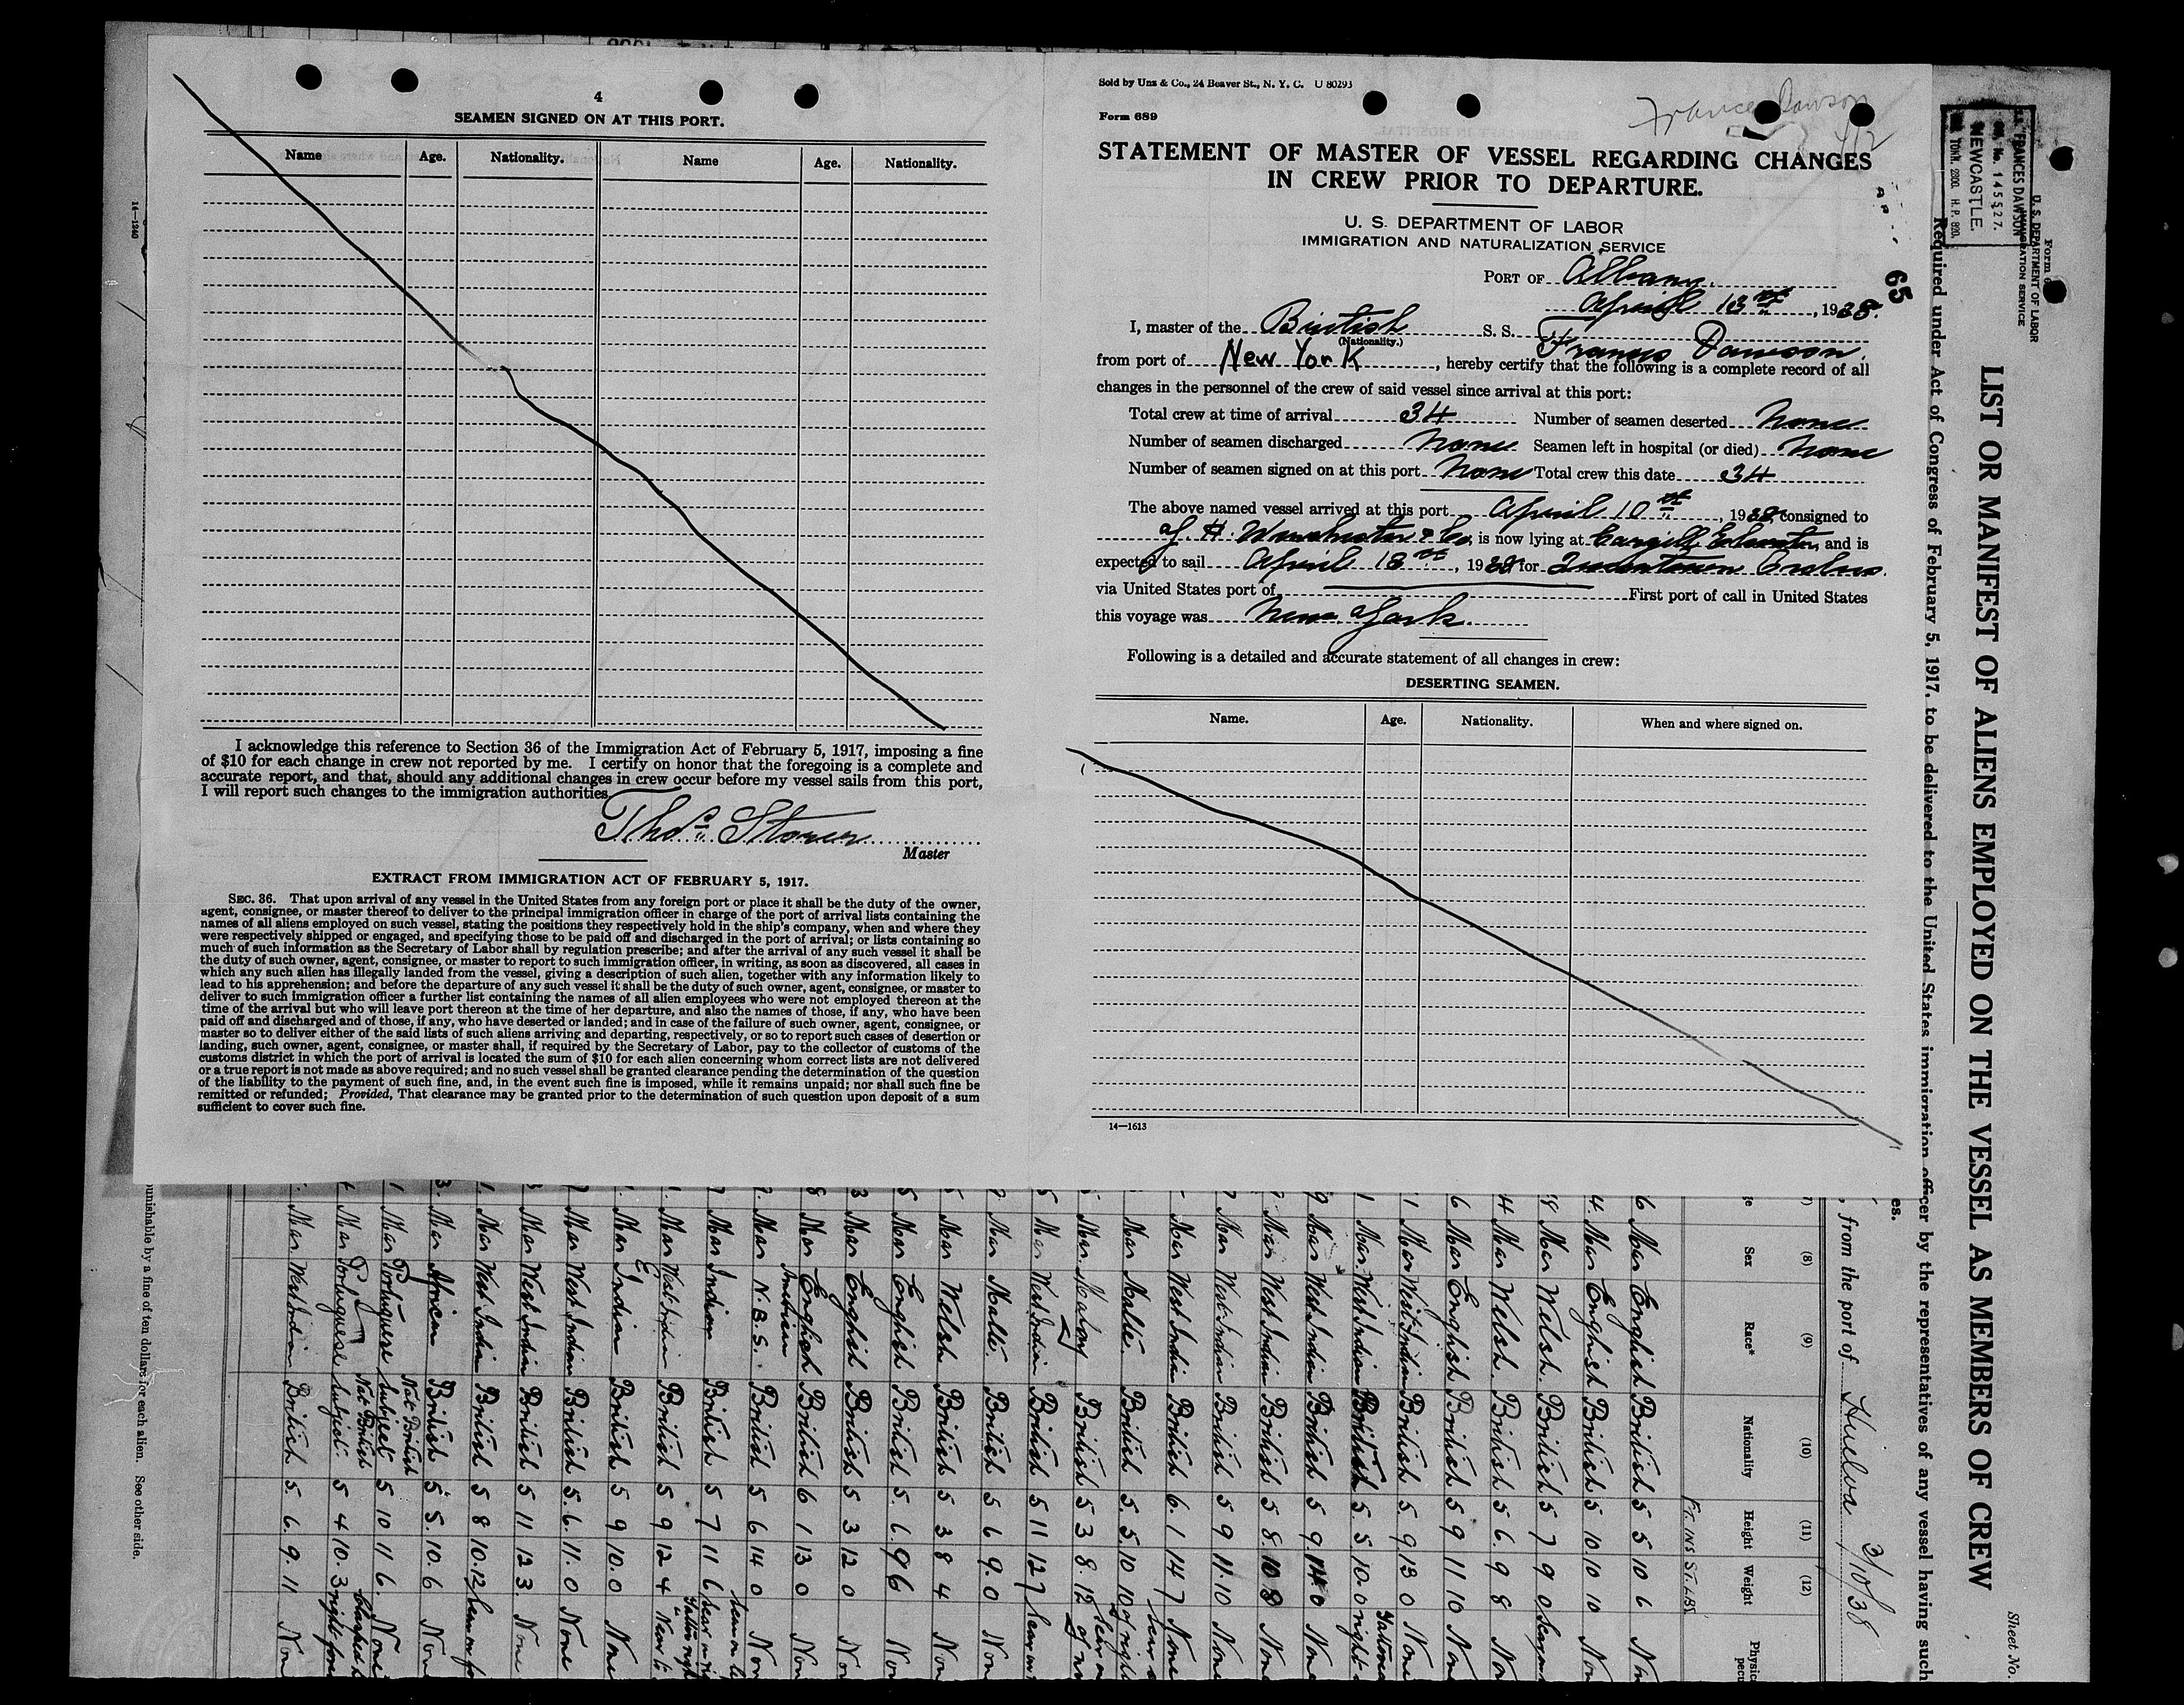 4
SEAMEN SIGNED ON AT THIS PORT.
Name Age. Nationality. Name Age. Nationality.
14—1240
I acknowledge this reference to Section 36 of the Immigration Act of February 5, 1917, imposing a fine
of $10 for each change in crew not reported by me. I certify on honor that the foregoing is a complete and
accurate report, and that, should any additional changes in crew occur before my vessel sails from this port,
I will report such changes to the immigration authorities.
Thos. Storer
Master
EXTRACT FROM IMMIGRATION ACT OF FEBRUARY 5, 1917.
SEC. 36. That upon arrival of any vessel in the United States from any foreign port or place it shall be the duty of the owner,
agent, consignee, or master thereof to deliver to the principal immigration officer in charge of the port of arrival lists containing the
names of all aliens employed on such vessel, stating the positions they respectively hold in the ship's company, when and where they
were respectively shipped or engaged, and specifying those to be paid off and discharged in the port of arrival; or lists containing so
much of such information as the Secretary of Labor shall by regulation prescribe; and after the arrival of any such vessel it shall be
the duty of such owner, agent, consignee, or master to report to such immigration officer, in writing, as soon as discovered, all cases in
which any such alien has illegally landed from the vessel, giving a description of such alien, together with any information likely to
lead to his apprehension; and before the departure of any such vessel it shall be the duty of such owner, agent, consignee, or master to
deliver to such immigration officer a further list containing the names of all alien employees who were not employed thereon at the
time of the arrival but who will leave port thereon at the time of her departure, and also the names of those, if any, who have been
paid off and discharged and of those, if any, who have deserted or landed; and in case of the failure of such owner, agent, consignee, or
master so to deliver either of the said lists of such aliens arriving and departing, respectively, or so to report such cases of desertion or
landing, such owner, agent, consignee, or master shall, if required by the Secretary of Labor, pay to the collector of customs of the
customs district in which the port of arrival is located the sum of $10 for each alien concerning whom correct lists are not delivered
or a true report is not made as above required; and no such vessel shall be granted clearance pending the determination of the question
of the liability to the payment of such fine, and, in the event such fine is imposed, while it remains unpaid; nor shall such fine be
remitted or refunded; Provided, That clearance may be granted prior to the determination of such question upon deposit of a sum
sufficient to cover such fine.
Sold by Unz & Co., 24 Beaver St., N. Y. C. U 80293
Form 689
Frances Dawson
STATEMENT OF MASTER OF VESSEL REGARDING CHANGES
IN CREW PRIOR TO DEPARTURE.
U. S. DEPARTMENT OF LABOR
IMMIGRATION AND NATURALIZATION SERVICE
PORT OF Albany.
April 13th, 1938.
65
I, master of the British S. S. Frances Dawson.
(Nationality.)
from port of New York, hereby certify that the following is a complete record of all
changes in the personnel of the crew of said vessel since arrival at this port:
Total crew at time of arrival 34 Number of seamen deserted None
Number of seamen discharged None Seamen left in hospital (or died) None
Number of seamen signed on at this port None Total crew this date 34
The above named vessel arrived at this port April 10th, 1938, consigned to
J. H. Winchester & Co, is now lying at Cargill Elevator, and is
expected to sail April 13th, 1938 for Queenstown Orders.
via United States port of First port of call in United States
this voyage was New York.
Following is a detailed and accurate statement of all changes in crew:
DESERTING SEAMEN.
Name. Age. Nationality. When and where signed on.
14—1613
Form
U. S. DEPARTMENT OF LABOR
IMMIGRATION SERVICE
"FRANCES DAWSON"
No. 145527.
NEWCASTLE.
TONN. 2800. H. P. 820.
Sheet No.
LIST OR MANIFEST OF ALIENS EMPLOYED ON THE VESSEL AS MEMBERS OF CREW
Required under Act of Congress of February 5, 1917, to be delivered to the United States immigration officer by the representatives of any vessel having such
es.
, from the port of Huelva 3/10/38
(8) (9) (10) (11) (12)
Sex Race* Nationality Height Weight
FT. INS ST. LBS
6 Mar English British 5 5 10 6
4 Mar English British 5 10 10 10
8 Mar Welsh. British 5 7 9 0
4 Mar Welsh. British 5 6. 9 8
6 Mar English British 5 9 11 10
1 Mar West Indian British 5. 9 13 0 None
1 Mar. West Indian British 5. 5 10. 0 right
9 Mar West Indian British 5 9. 14. 0 None
Mar West Indian British 5 8. 10 8 None
Mar West Indian British 5 9 11. 10 None
Mar West Indian British 6. 1 14 7 None
Mar Maltse. British 5. 5. 10 10
Mar. Malay British 5 3 8. 12
5 Mar West Indian British 5 11 12 7
Mar Maltse. British 5 6 9. 0
Mar Welsh British 5 3 8 4
5 Mar English British 5. 6. 9 6
3 Mar English British 5 3 12 0
8 Mar English British 6 1 13 0
Mar N. B. S. American British 5 6 14 0
Mar Indian British 5 7 11 6
Mar West Indian British 5 9 12 4
Mar E Indian British 5 9 10. 0 None
Mar West Indian British 5. 6. 11. 0 None
Mar West Indian British 5 11 12 3. None
Mar West Indian British 5 8 10. 12
3. Mar African British 5 5. 10. 6
1 Mar Portuguese Nat British subject 5 10 11 6. None
Mar Portuguese Nat British subject 5 4 10. 3
Mar West Indian British 5. 6. 9. 11
punishable by a fine of ten dollars for each alien. See other side.